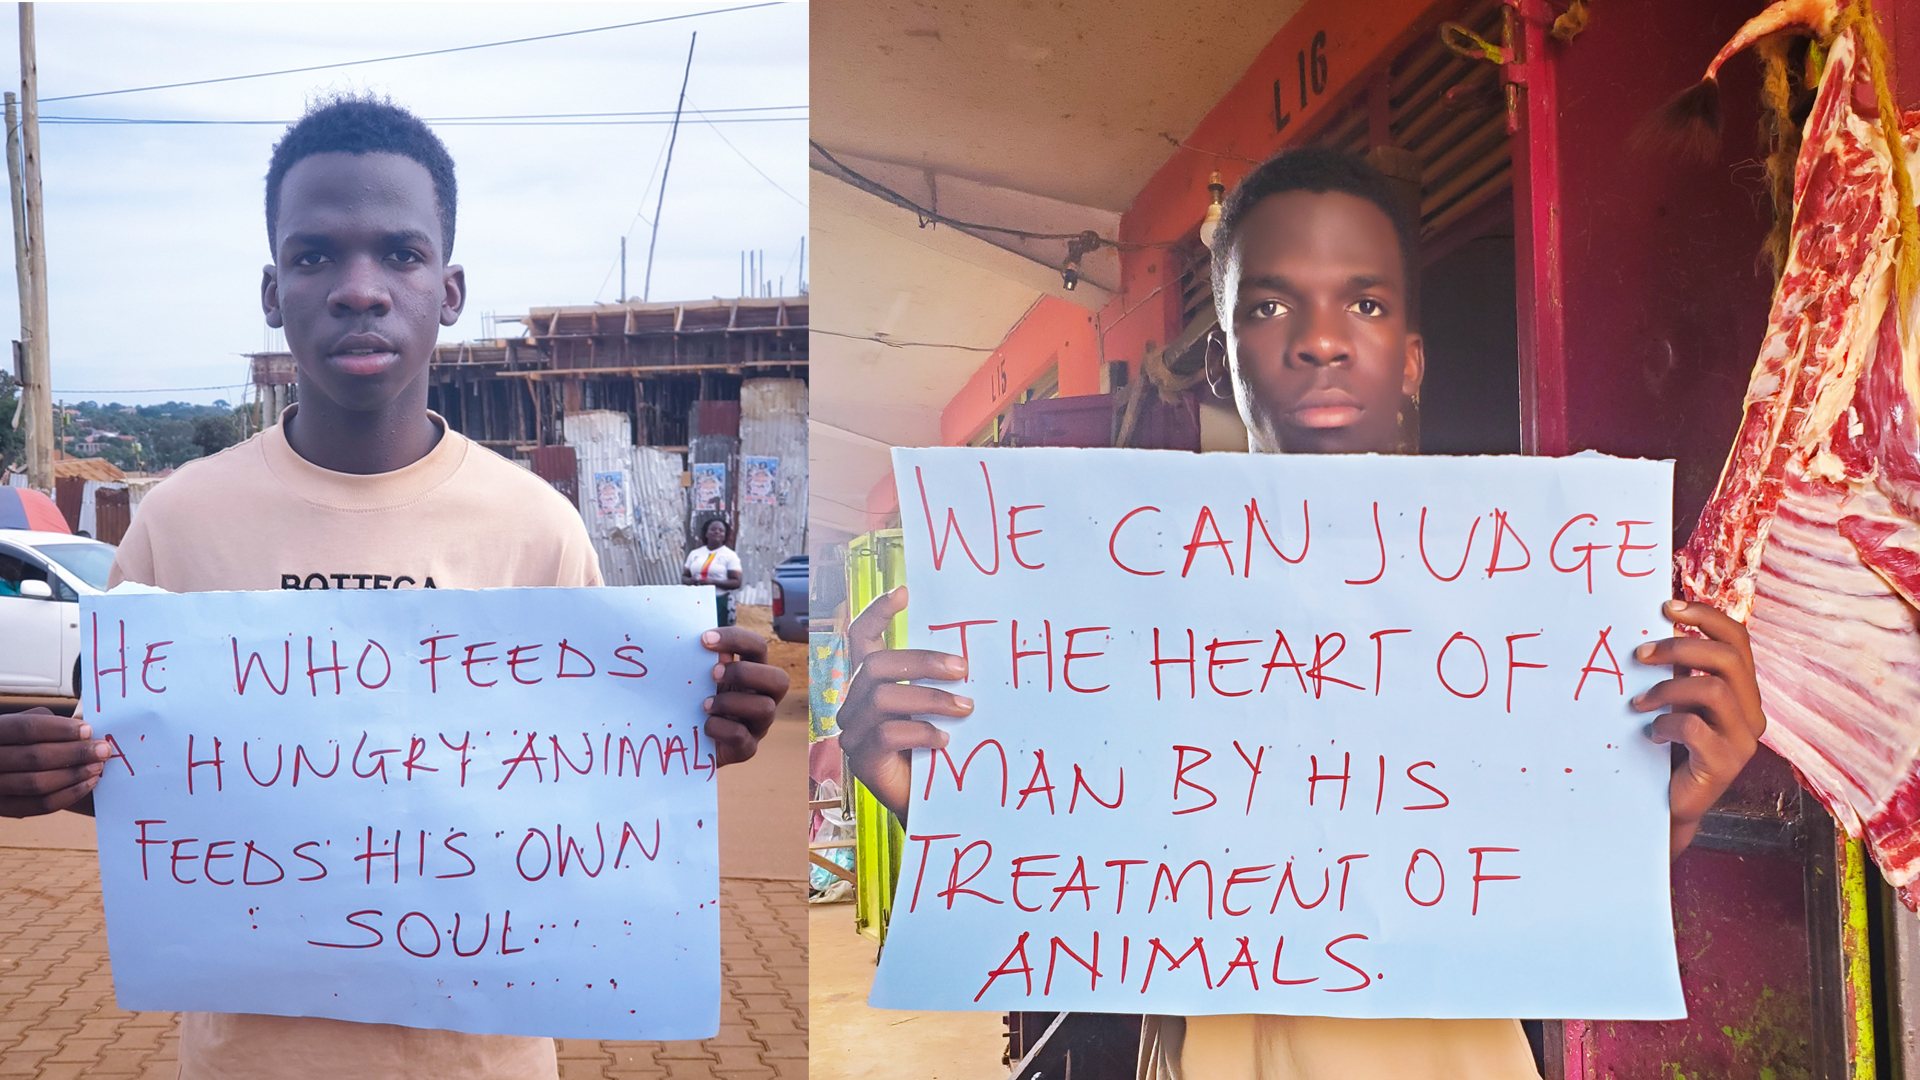 BOTTEGA
HE WHO FEEDS
A HUNGRY ANIMAL,
FEEDS HIS OWN
SOUL
L 16
L15
WE CAN JUDGE
THE HEART OF A
MAN BY HIS
TREATMENT OF
ANIMALS.